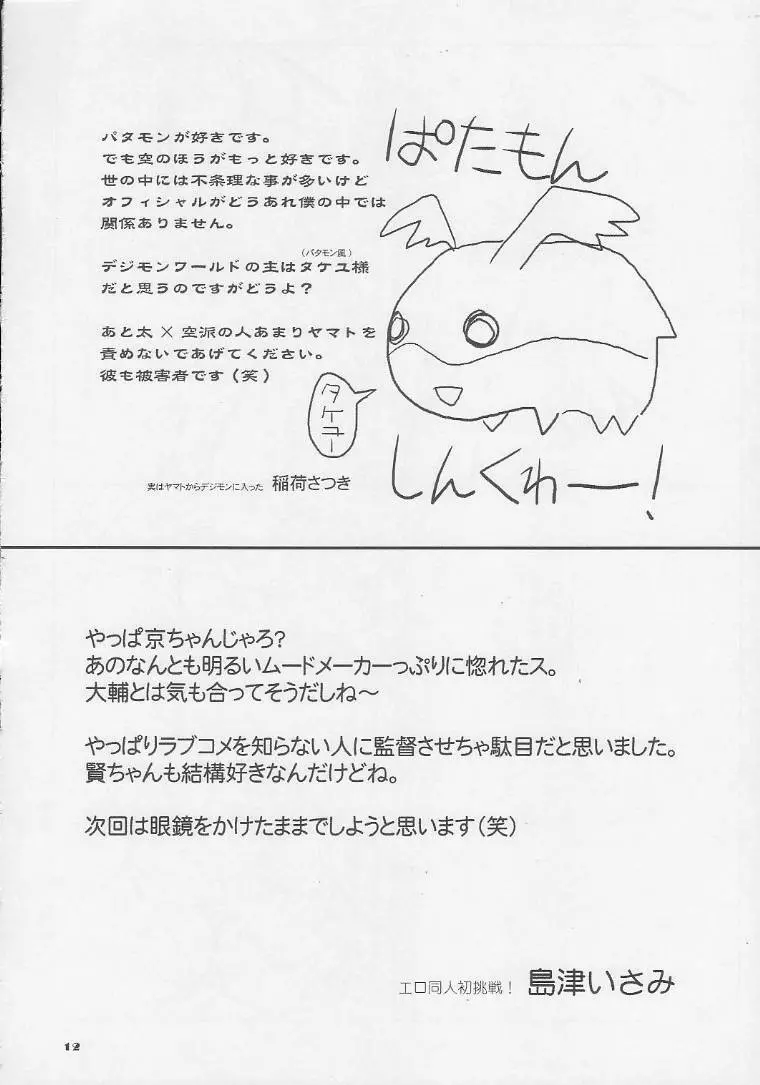 パタモンが好きです。
でも空のほうがもっと好きです。
世の中には不条理な事が多いけど
オフィシャルがどうあれ僕の中では
関係ありません。
(パタモン風)
デジモンワールドの主はタケユ様
だと思うのですがどうよ？
あと太×空派の人あまりヤマトを
責めないであげてください。
彼も被害者です(笑)
実はヤマトからデジモンに入った 稲荷さつき
ぱたもん
タケユー
しんくわー！
やっぱ京ちゃんじゃろ？
あのなんとも明るいムードメーカーっぷりに惚れたス。
大輔とは気も合ってそうだしね～
やっぱりラブコメを知らない人に監督させちゃ駄目だと思いました。
賢ちゃんも結構好きなんだけどね。
次回は眼鏡をかけたままでしようと思います(笑)
エロ同人初挑戦！ 島津いさみ
12